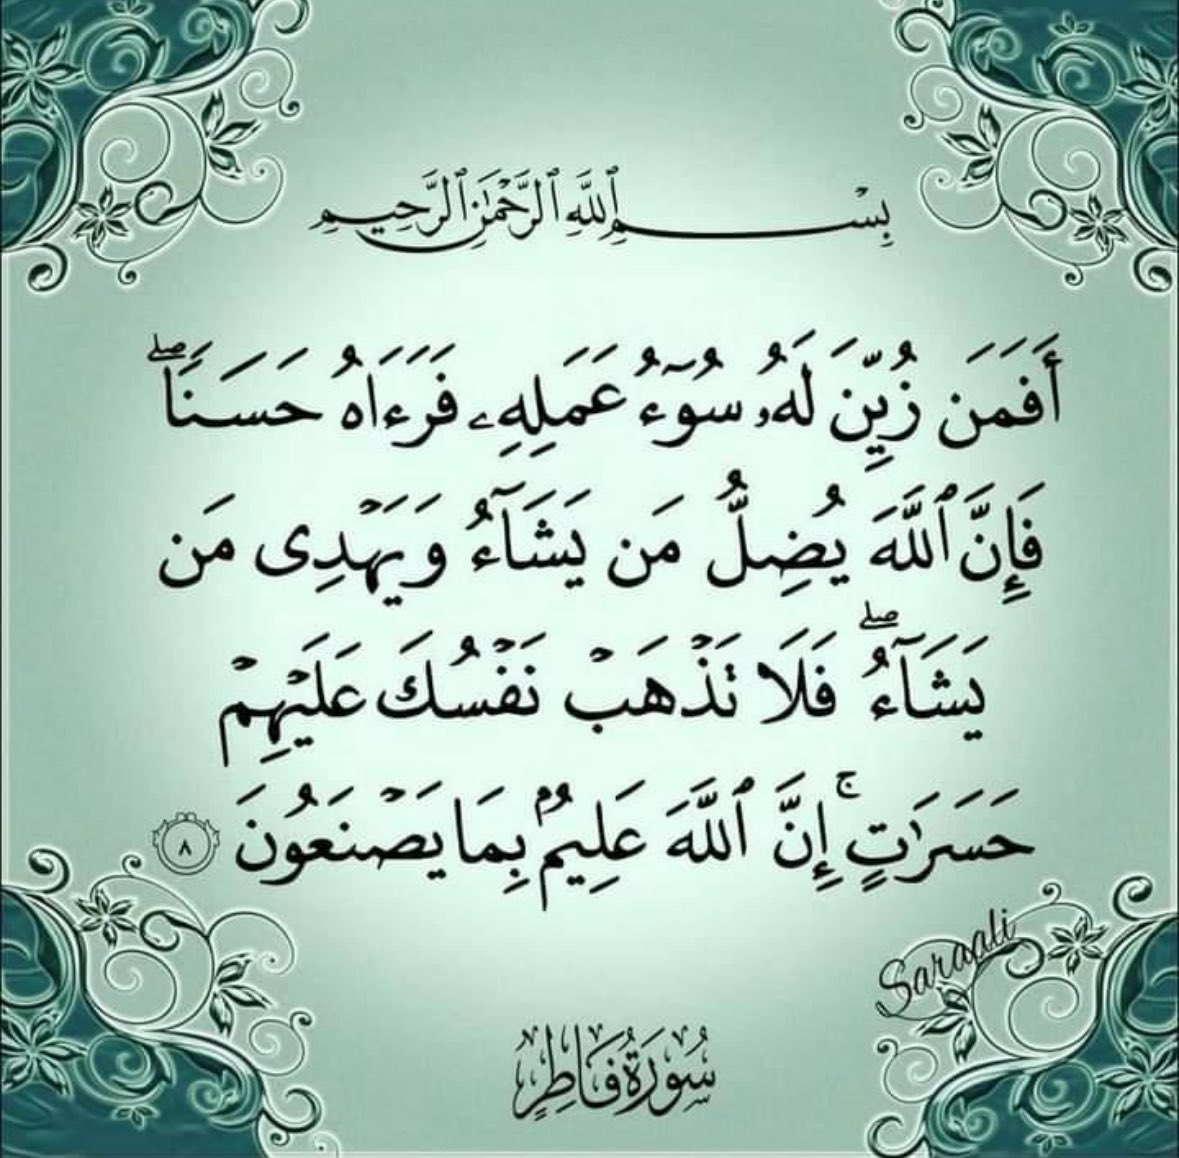 بِسْمِ ٱللَّهِ ٱلرَّحْمَٰنِ ٱلرَّحِيمِ
أَفَمَن زُيِّنَ لَهُۥ سُوٓءُ عَمَلِهِۦ فَرَءَاهُ حَسَنًا ۖ
فَإِنَّ ٱللَّهَ يُضِلُّ مَن يَشَآءُ وَيَهْدِى مَن
يَشَآءُ ۖ فَلَا تَذْهَبْ نَفْسُكَ عَلَيْهِمْ
حَسَرَٰتٍ ۚ إِنَّ ٱللَّهَ عَلِيمٌۢ بِمَا يَصْنَعُونَ ٨
Saraali
سُورَةُ فَاطِرٍ